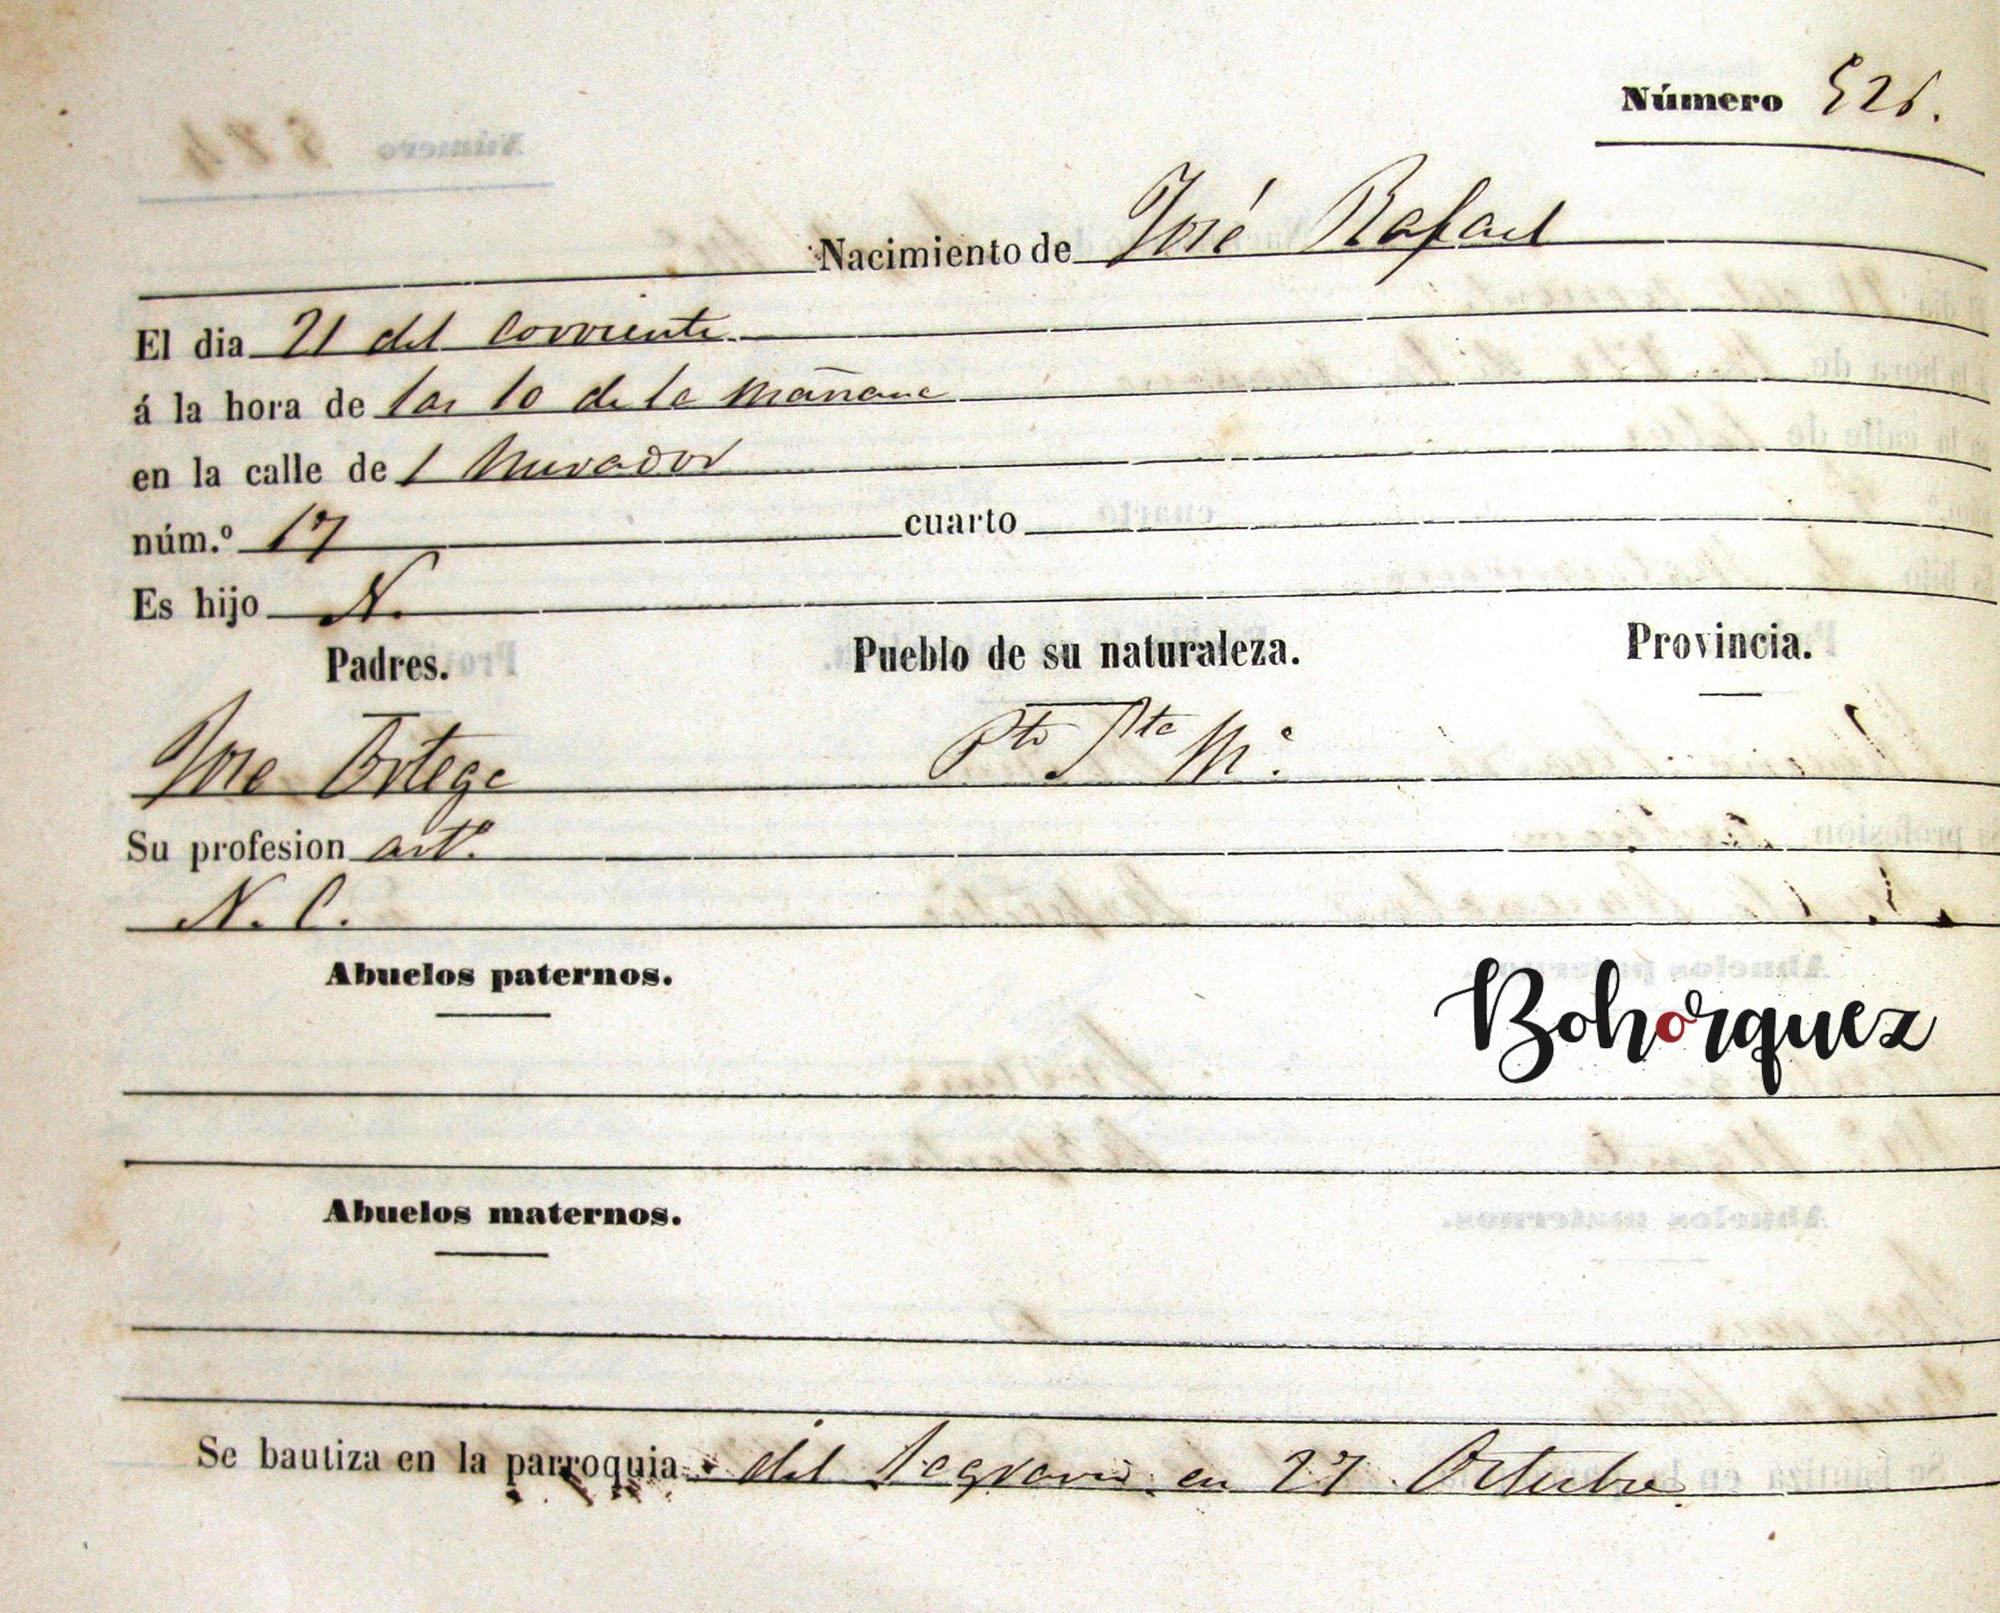 Número 526.
Nacimiento de José Rafael
El dia 21 del corriente
á la hora de las 10 de la mañana
en la calle de l Mirador
núm.º 17 cuarto
Es hijo N.
Padres. Pueblo de su naturaleza. Provincia.
José Ortega Pto Sta Mª.
Su profesion artº.
N. C.
Abuelos paternos.
Bohorquez
Abuelos maternos.
Se bautiza en la parroquia del Sagrario en 27 Octubre